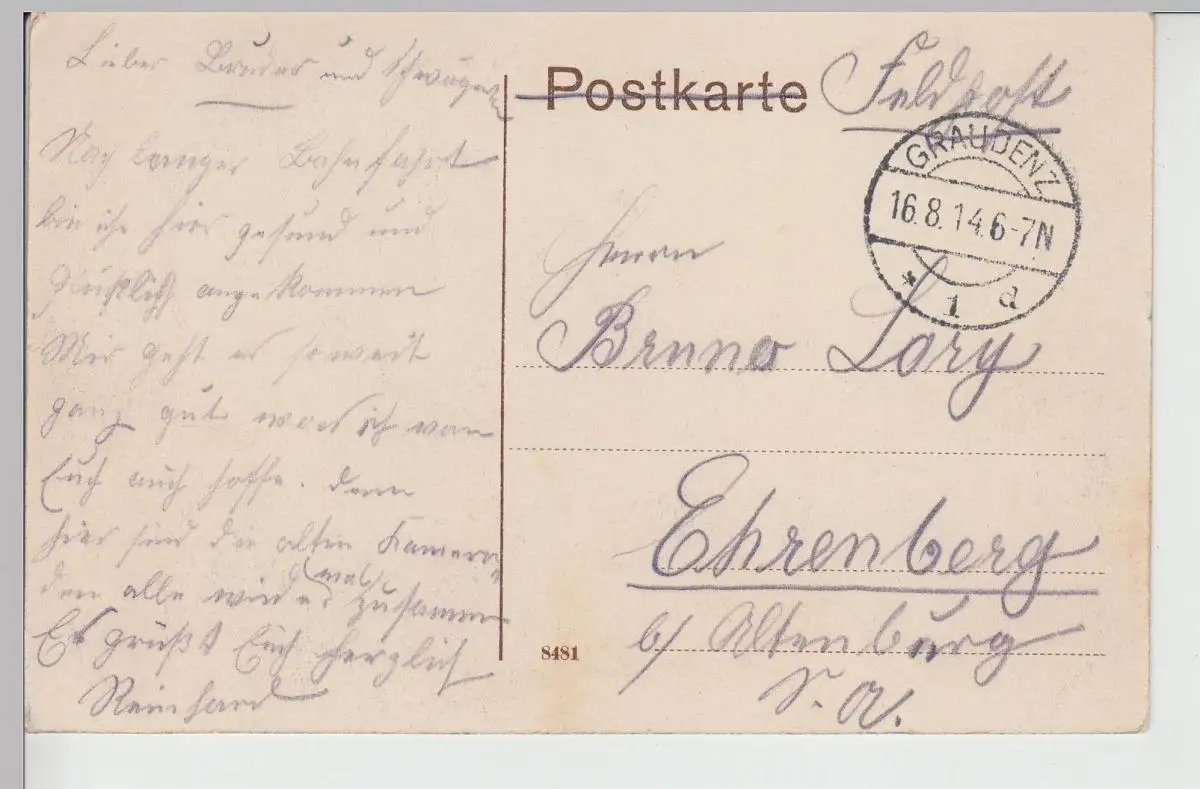 Lieber Bruder und Schwägerin
Nach langer Bahnfahrt
bin ich hier gesund und
glücklich angekommen
Mir geht es soweit
ganz gut was ich von
Euch auch hoffe. Denn
hier sind die alten Kamera-
den alle wieder mal zusammen
Es grüßt Euch herzlich
Reinhard
Postkarte
Feldpost
GRAUDENZ
16.8.14.6-7N
* 1 d
Herrn
Bruno Lory
Ehrenberg
b/ Altenburg
S. A.
8481